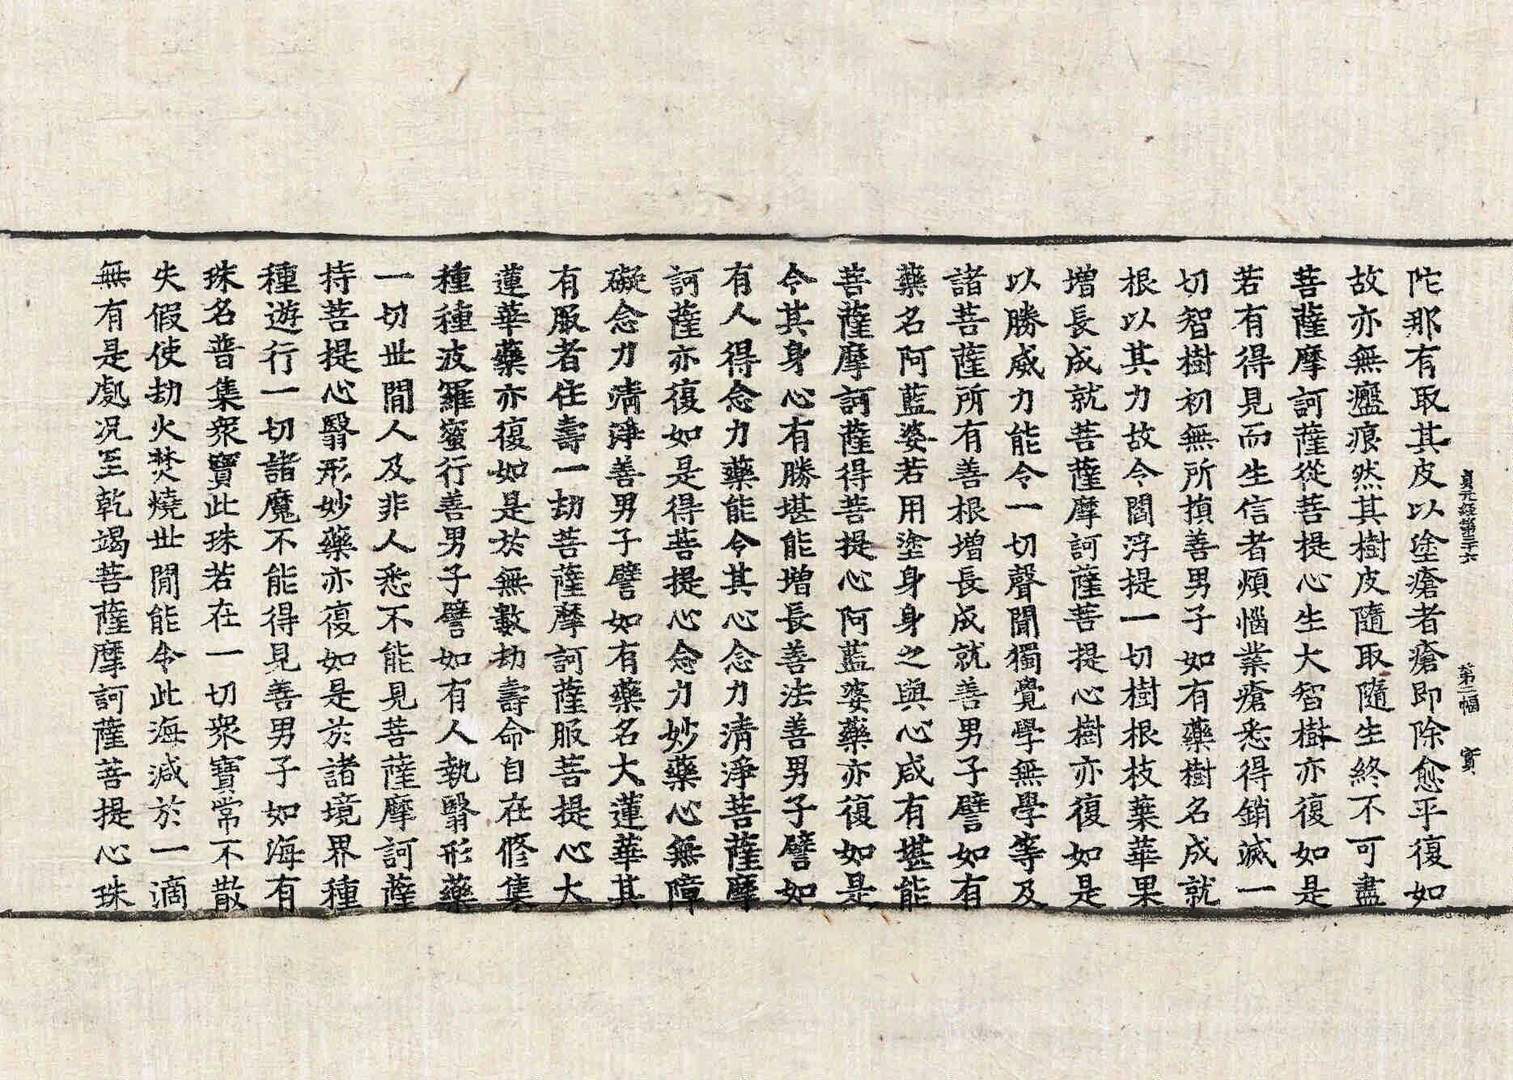 陀那有取其皮以塗瘡者瘡即除愈平復如
貞元經第三十六 第二幅 寳
故亦無瘢痕然其樹皮隨取隨生終不可盡
菩薩摩訶薩從菩提心生大智樹亦復如是
若有得見而生信者煩惱業瘡悉得銷滅一
切智樹初無所損善男子如有藥樹名成就
根以其力故令閻浮提一切樹根枝葉華果
增長成就菩薩摩訶薩菩提心樹亦復如是
以勝威力能令一切聲聞獨覺學無學等及
諸菩薩所有善根增長成就善男子譬如有
藥名阿藍婆若用塗身身之與心咸有堪能
菩薩摩訶薩得菩提心阿藍婆藥亦復如是
令其身心有勝堪能增長善法善男子譬如
有人得念力藥能令其心念力清淨菩薩摩
訶薩亦復如是得菩提心念力妙藥心無障
礙念力清淨善男子譬如有藥名大蓮華其
有服者住壽一劫菩薩摩訶薩服菩提心大
蓮華藥亦復如是於無數劫壽命自在修集
種種波羅蜜行善男子譬如有人執翳形藥
一切世間人及非人悉不能見菩薩摩訶薩
持菩提心翳形妙藥亦復如是於諸境界種
種遊行一切諸魔不能得見善男子如海有
珠名普集衆寶此珠若在一切衆寶常不散
失假使劫火焚燒世間能令此海減於一滴
無有是處况至乾竭菩薩摩訶薩菩提心珠